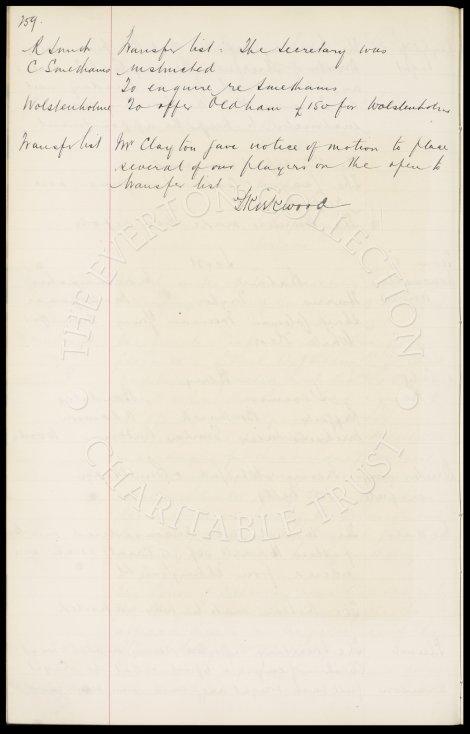 259.
R Smith Transfer list: The Secretary was
C Smethams instructed
To enquire re Smethams
Wolstenholme To offer Oldham £150 for Wolstenholme
Transfer list Mr Clayton gave notice of motion to place
several of our players on the open to
transfer list
Kirkwood
THE EVERTON COLLECTION
CHARITABLE TRUST